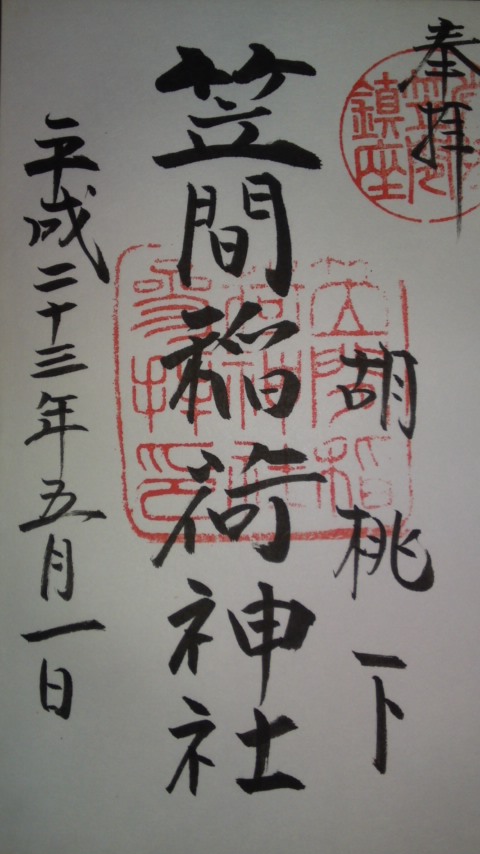 奉拝
胡桃下
笠間稲荷神社
平成二十三年五月一日
鎮座
笠間稲
荷神社
参拝印